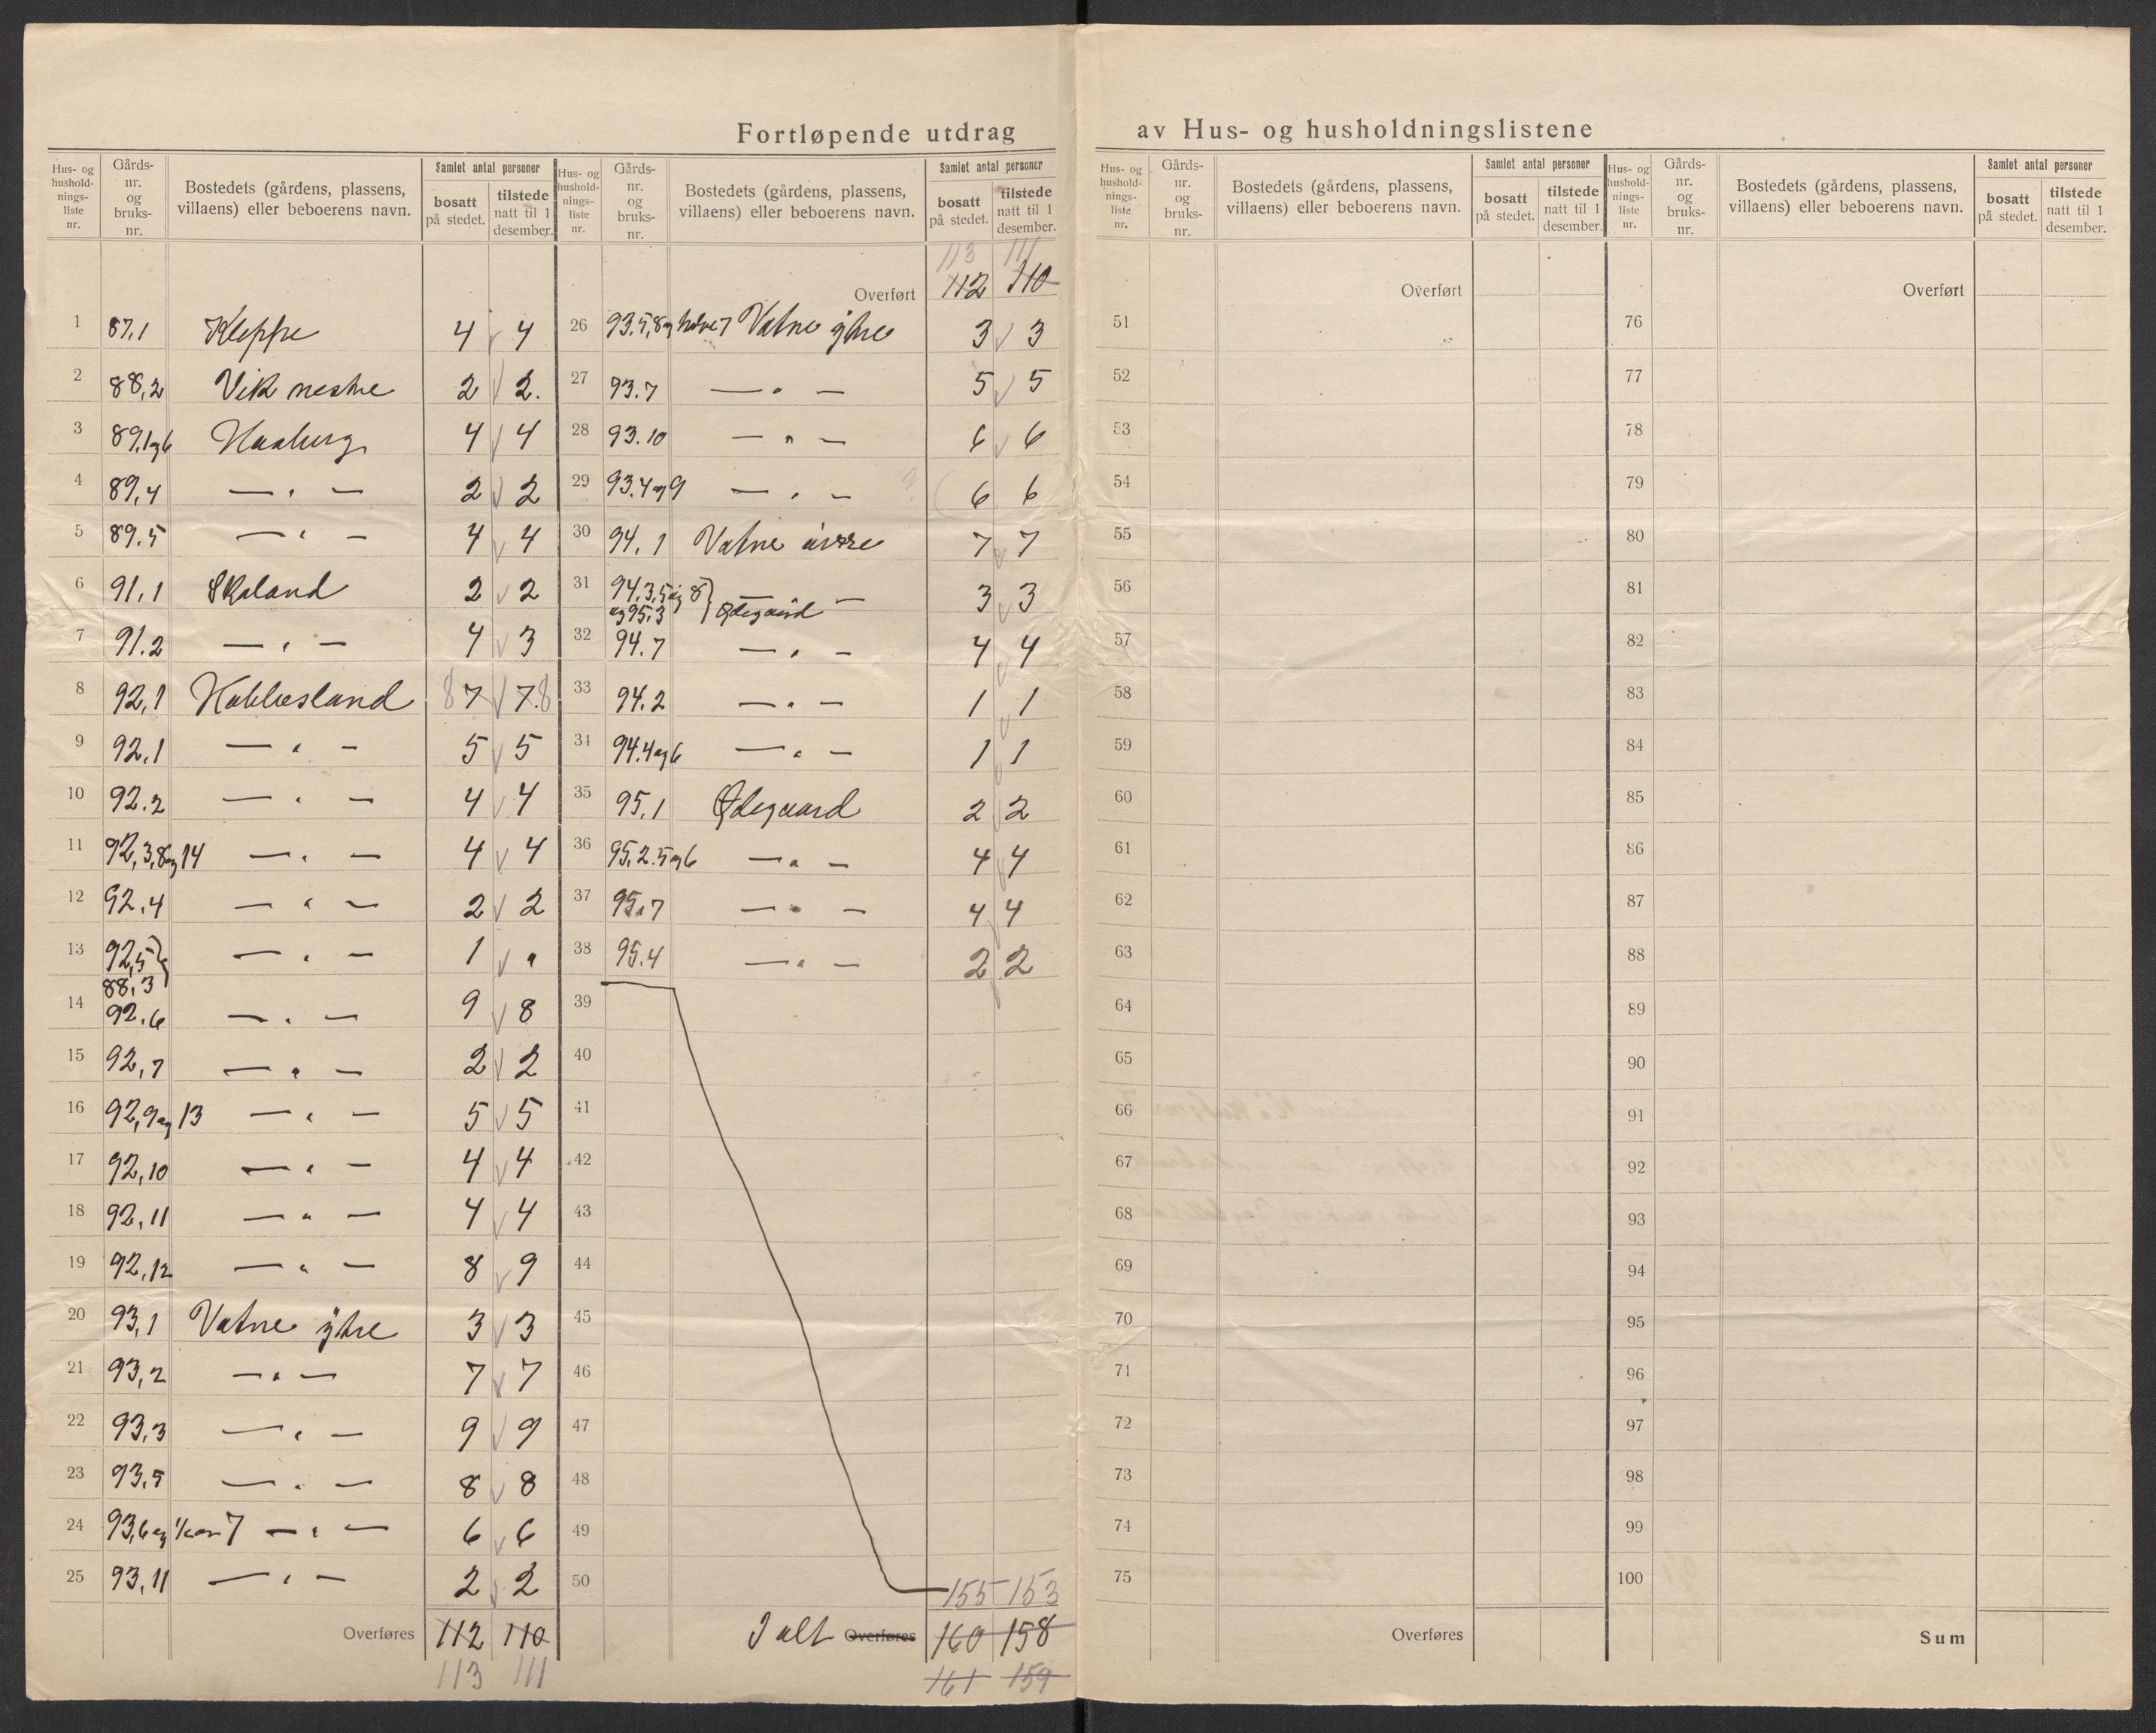 Fortløpende utdrag av Hus- og husholdningslistene
Hus- og hushold-nings-liste nr. Gårds-nr. og bruks-nr. Bostedets (gårdens, plassens, villaens) eller beboerens navn. Samlet antal personer bosatt på stedet. tilstede natt til 1 desember.
1 87,1 Kleppe 4 4
2 88,2 Vik nestre 2 2.
3 89,1og6 Haaberg 4 4
4 89,4 — " — 2 2
5 89.5 — " — 4 4
6 91,1 Skaland 2 2
7 91.2 — " — 4 3
8 92,1 Habbesland 8 7 7.8
9 92,1 — " — 5 5
10 92.2 — " — 4 4
11 92,3,8og14 — " — 4 4
12 92.4 — " — 2 2
13 92,5 — " — 1 "
88,3
14 92.6 — " — 9 8
15 92,7 — " — 2 2
16 92,9og13 — " — 5 5
17 92,10 — " — 4 4
18 92,11 — " — 4 4
19 92,12 — " — 8 9
20 93,1 Vatne ytre 3 3
21 93,2 — " — 7 7
22 93,3 — " — 9 9
23 93,5 — " — 8 8
24 93,6og 7 — " — 6 6
25 93,11 — " — 2 2
Overføres 112 110
113 111
Hus- og hushold-nings-liste nr. Gårds-nr. og bruks-nr. Bostedets (gårdens, plassens, villaens) eller beboerens navn. Samlet antal personer bosatt på stedet. tilstede natt til 1 desember.
113 111
Overført 112 110
26 93.5,8og halve 7 Vatne ytre 3 3
27 93.7 — " — 5 5
28 93.10 — " — 6 6
29 93.4og9 — " — ? ( 6 6
30 94,1 Vatne øvre 7 7
31 94,3,5og8 — — 3 3
og95,3 Ødegaard
32 94.7 — " — 4 4
33 94.2 — " — 1 1
34 94.4og6 — " — 1 1
35 95,1 Ødegaard 2 2
36 95,2.5og6 — " — 4 4
37 95.7 — " — 4 4
38 95.4 — " — 2 2
39
40
41
42
43
44
45
46
47
48
49
50 155 153
I alt Overføres 160 158
161 159
Hus- og hushold-nings-liste nr. Gårds-nr. og bruks-nr. Bostedets (gårdens, plassens, villaens) eller beboerens navn. Samlet antal personer bosatt på stedet. tilstede natt til 1 desember.
Overført
51
52
53
54
55
56
57
58
59
60
61
62
63
64
65
66
67
68
69
70
71
72
73
74
75
Overføres
Hus- og hushold-nings-liste nr. Gårds-nr. og bruks-nr. Bostedets (gårdens, plassens, villaens) eller beboerens navn. Samlet antal personer bosatt på stedet. tilstede natt til 1 desember.
Overført
76
77
78
79
80
81
82
83
84
85
86
87
88
89
90
91
92
93
94
95
96
97
98
99
100
Sum